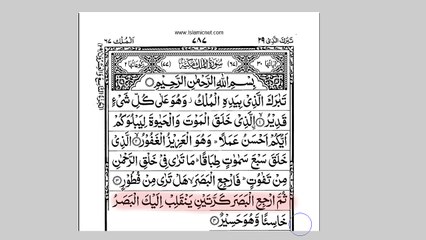 www.Islamicnet.com
تَبٰرَكَ الَّذِیْ ٢٩
٧٨٧
اَلْمُلْك ٦٧
سُوْرَةُ الْمُلْكِ مَكِّيَّةٌ
بِسْمِ اللّٰهِ الرَّحْمٰنِ الرَّحِيْمِ
تَبٰرَكَ الَّذِیْ بِيَدِهِ الْمُلْكُ وَهُوَ عَلٰی كُلِّ شَیْءٍ
قَدِيْرُ ۨ الَّذِیْ خَلَقَ الْمَوْتَ وَالْحَيٰوةَ لِيَبْلُوَكُمْ
اَيُّكُمْ اَحْسَنُ عَمَلًا ؕ وَهُوَ الْعَزِيْزُ الْغَفُوْرُ ۙ الَّذِیْ
خَلَقَ سَبْعَ سَمٰوٰتٍ طِبَاقًا ؕ مَا تَرٰی فِیْ خَلْقِ الرَّحْمٰنِ
مِنْ تَفٰوُتٍ ؕ فَارْجِعِ الْبَصَرَ ۙ هَلْ تَرٰی مِنْ فُطُوْرٍ
ثُمَّ ارْجِعِ الْبَصَرَ كَرَّتَيْنِ يَنْقَلِبْ اِلَيْكَ الْبَصَرُ
خَاسِئًا وَّهُوَ حَسِيْرٌ